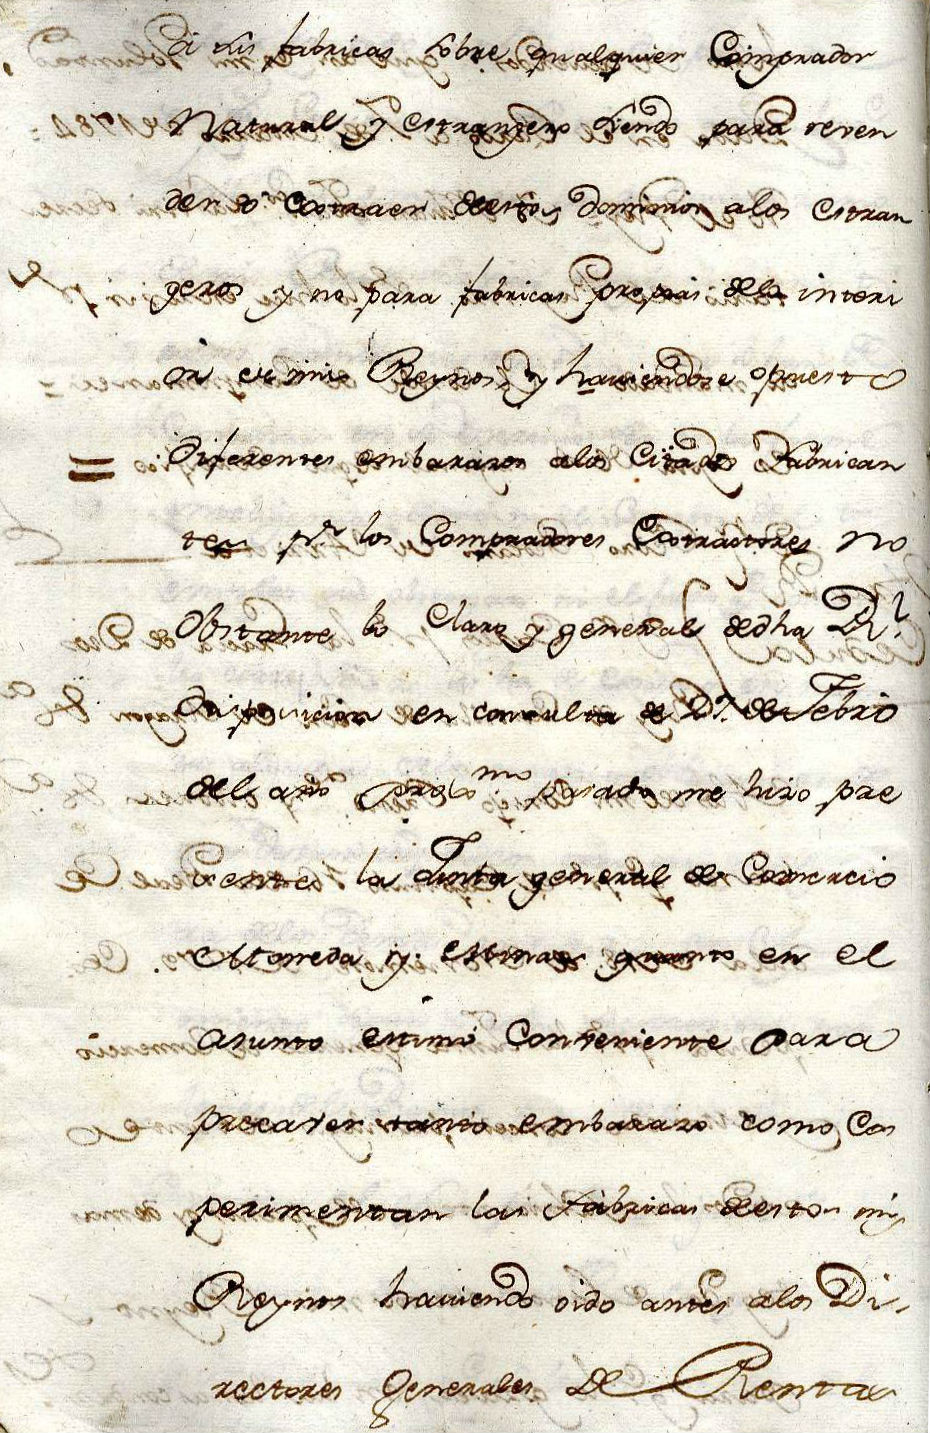 di sus fabricas sobre qualquier Comprador
Natural y estrangero siendo para reven
der o extraer destos dominios a los estran
geros y no para fabricas propias dela interi
or en mis Reynos y haviendose opuesto
= diferentes embarazos alos Citados Fabrican
tes pr los Compradores Extractores no
Obstante lo Claro y general de dha Rl
disposicion en consulta de de Febro
del año proxmo pasado me hizo pre
cente la Junta general de Comercio
e Moneda y quanto en el
asunto estimó Conveniente para
precaver tanto embarazo como Es
perimentan las fabricas destos mis
Reynos haviendo oido antes alos Di-
rectores Generales de Rentas